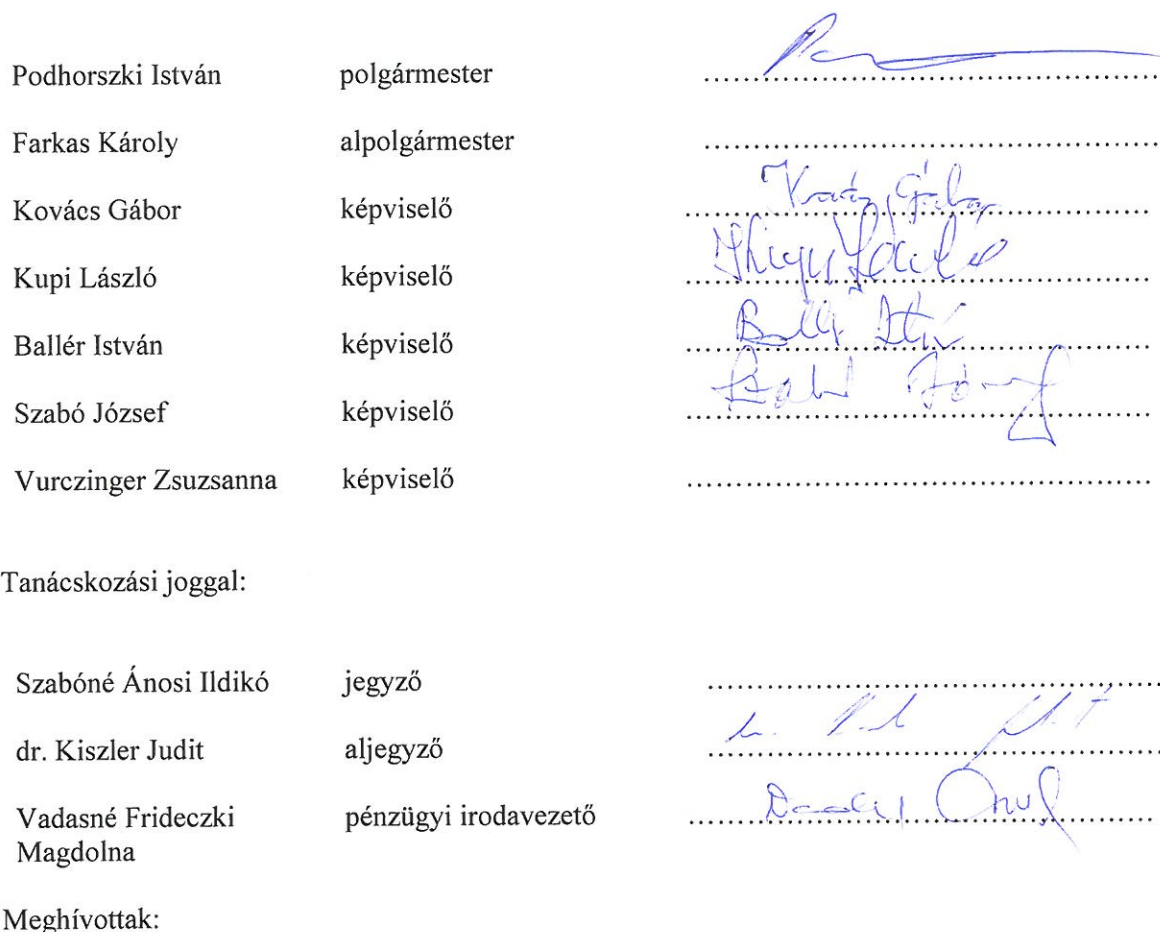 Podhorszki István polgármester ........................................
Farkas Károly alpolgármester ........................................
Kovács Gábor képviselő ........................................ Kovács Gábor
Kupi László képviselő ........................................
Ballér István képviselő ........................................
Szabó József képviselő ........................................ Szabó József
Vurczinger Zsuzsanna képviselő ........................................
Tanácskozási joggal:
Szabóné Ánosi Ildikó jegyző ........................................
dr. Kiszler Judit aljegyző ........................................
Vadasné Frideczki pénzügyi irodavezető ........................................
Magdolna
Meghívottak: